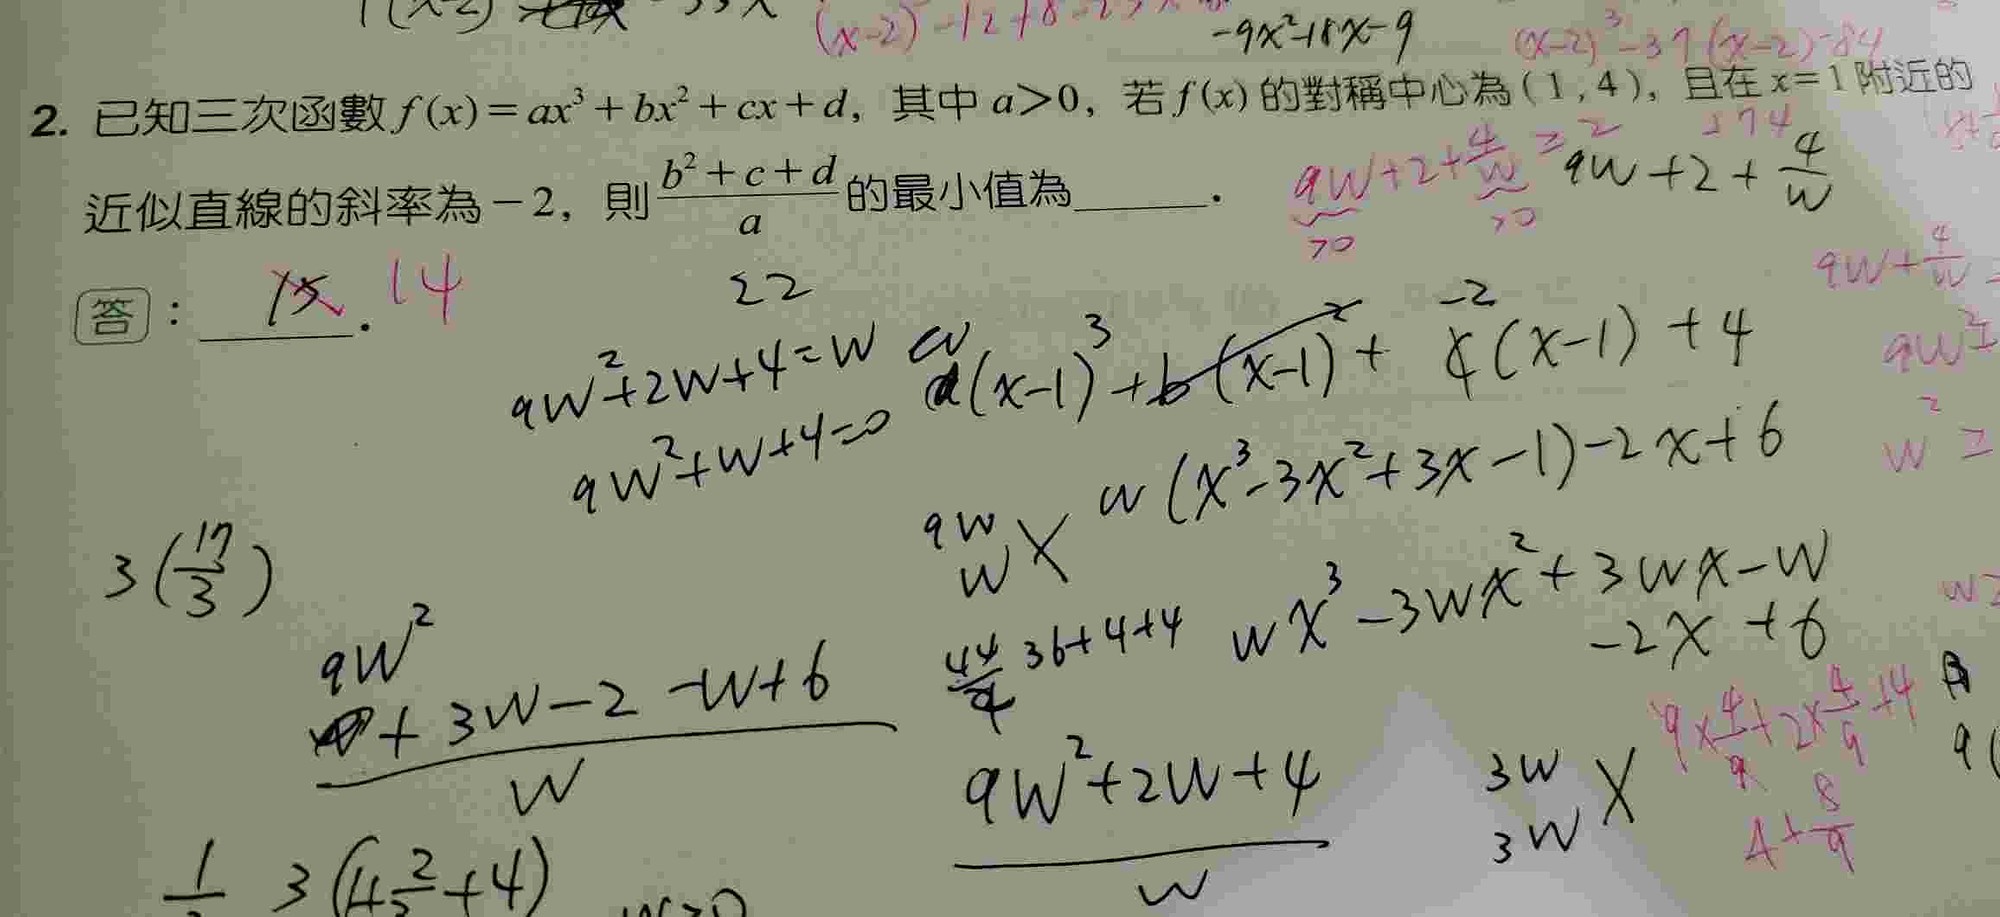 -9x²-18x-9
(x-2)³-37(x-2)-84
2. 已知三次函數 f(x)=ax³+bx²+cx+d, 其中 a>0, 若 f(x) 的對稱中心為(1,4), 且在 x=1 附近的
近似直線的斜率為-2, 則 (b²+c+d)/a 的最小值為______.
9W+2+4/W ≥
>0 >0
9W+2+4/W
9W+4/W
答: 15. 14
22
9W²+2W+4=W
9W²+W+4=0
a(x-1)³+b(x-1)²+ -2(x-1)+4
9W²
W²=
W(x³-3x²+3x-1)-2x+6
9W
W X
3(17/3)
WX³-3WX²+3WX-W
-2X+6
9W²
+3W-2-W+6
W
44/4 36+4+4
9W²+2W+4
W
3W
3W X
9×4/9+2×4/9+4
4+8/9
3(4 2/3+4)